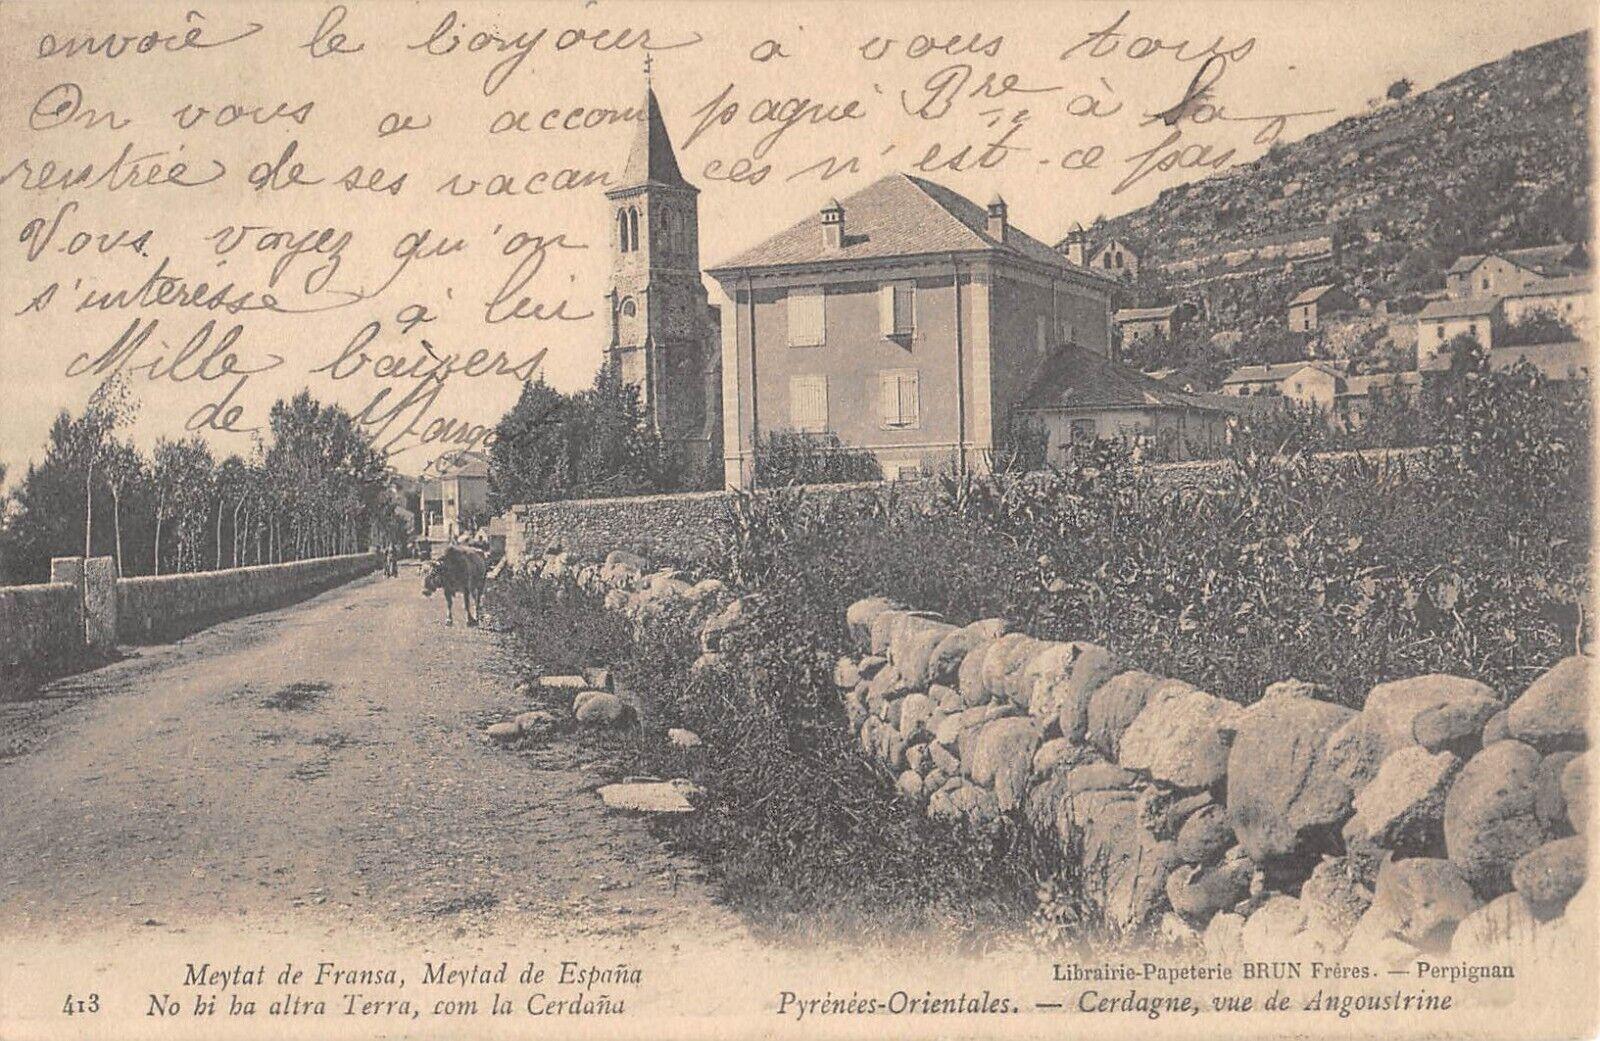 envoie le bonjour à vous tous
On vous a accompagné Bre à la
rentrée de ses vacances n'est-ce pas
Vous voyez qu'on
s'intéresse à lui
Mille baisers
de
Meytat de Fransa, Meytad de España
413 No hi ha altra Terra, com la Cerdaña
Librairie-Papeterie BRUN Frères. — Perpignan
Pyrénées-Orientales. — Cerdagne, vue de Angoustrine